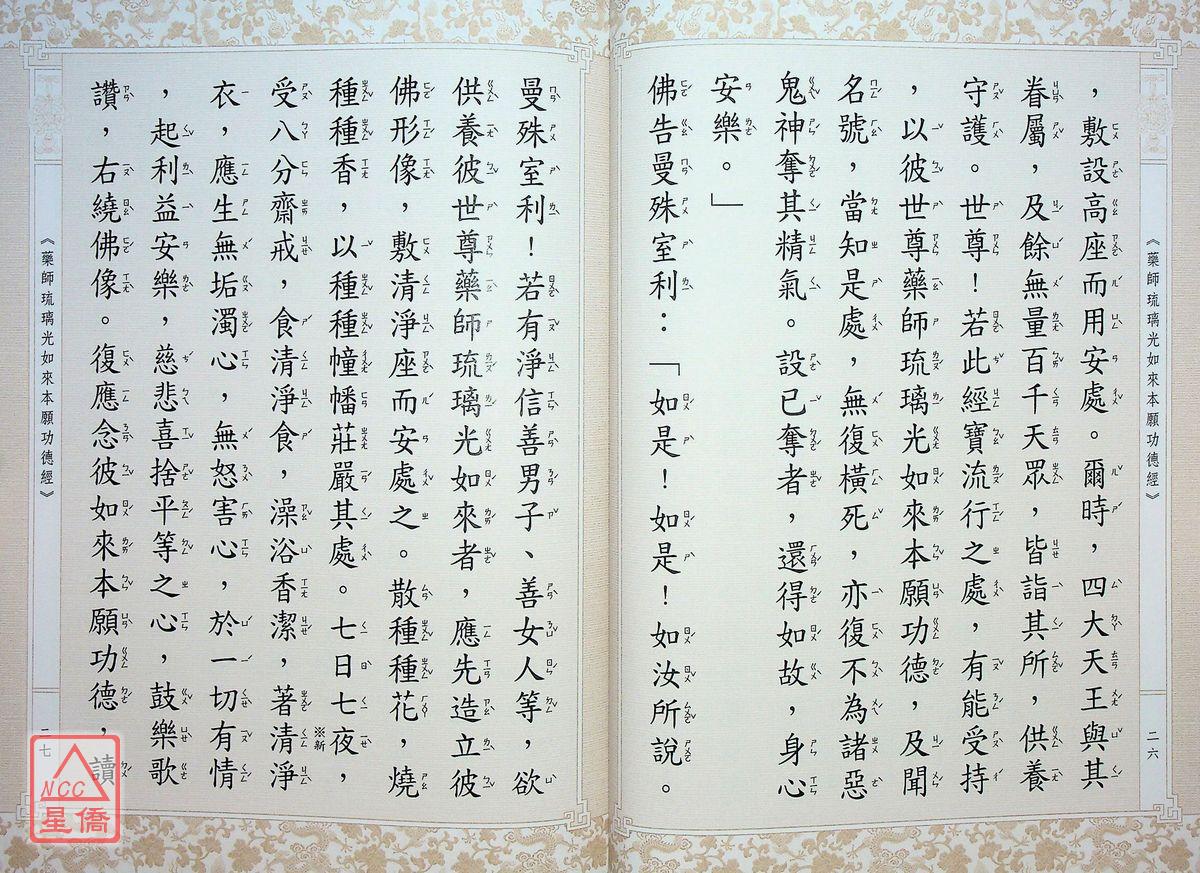 《藥師琉璃光如來本願功德經》
二六
，敷設高座而用安處。爾時，四大天王與其
眷屬，及餘無量百千天眾，皆詣其所，供養
守護。世尊！若此經寶流行之處，有能受持
，以彼世尊藥師琉璃光如來本願功德，及聞
名號，當知是處，無復橫死，亦復不為諸惡
鬼神奪其精氣。設已奪者，還得如故，身心
安樂。」
佛告曼殊室利：「如是！如是！如汝所說。
曼殊室利！若有淨信善男子、善女人等，欲
供養彼世尊藥師琉璃光如來者，應先造立彼
佛形像，敷清淨座而安處之。散種種花，燒
種種香，以種種幢幡莊嚴其處。七日七夜，
※新
受八分齋戒，食清淨食，澡浴香潔，著清淨
衣，應生無垢濁心，無怒害心，於一切有情
，起利益安樂，慈悲喜捨平等之心，鼓樂歌
讚，右繞佛像。復應念彼如來本願功德，讀
《藥師琉璃光如來本願功德經》
二七
NCC
星僑